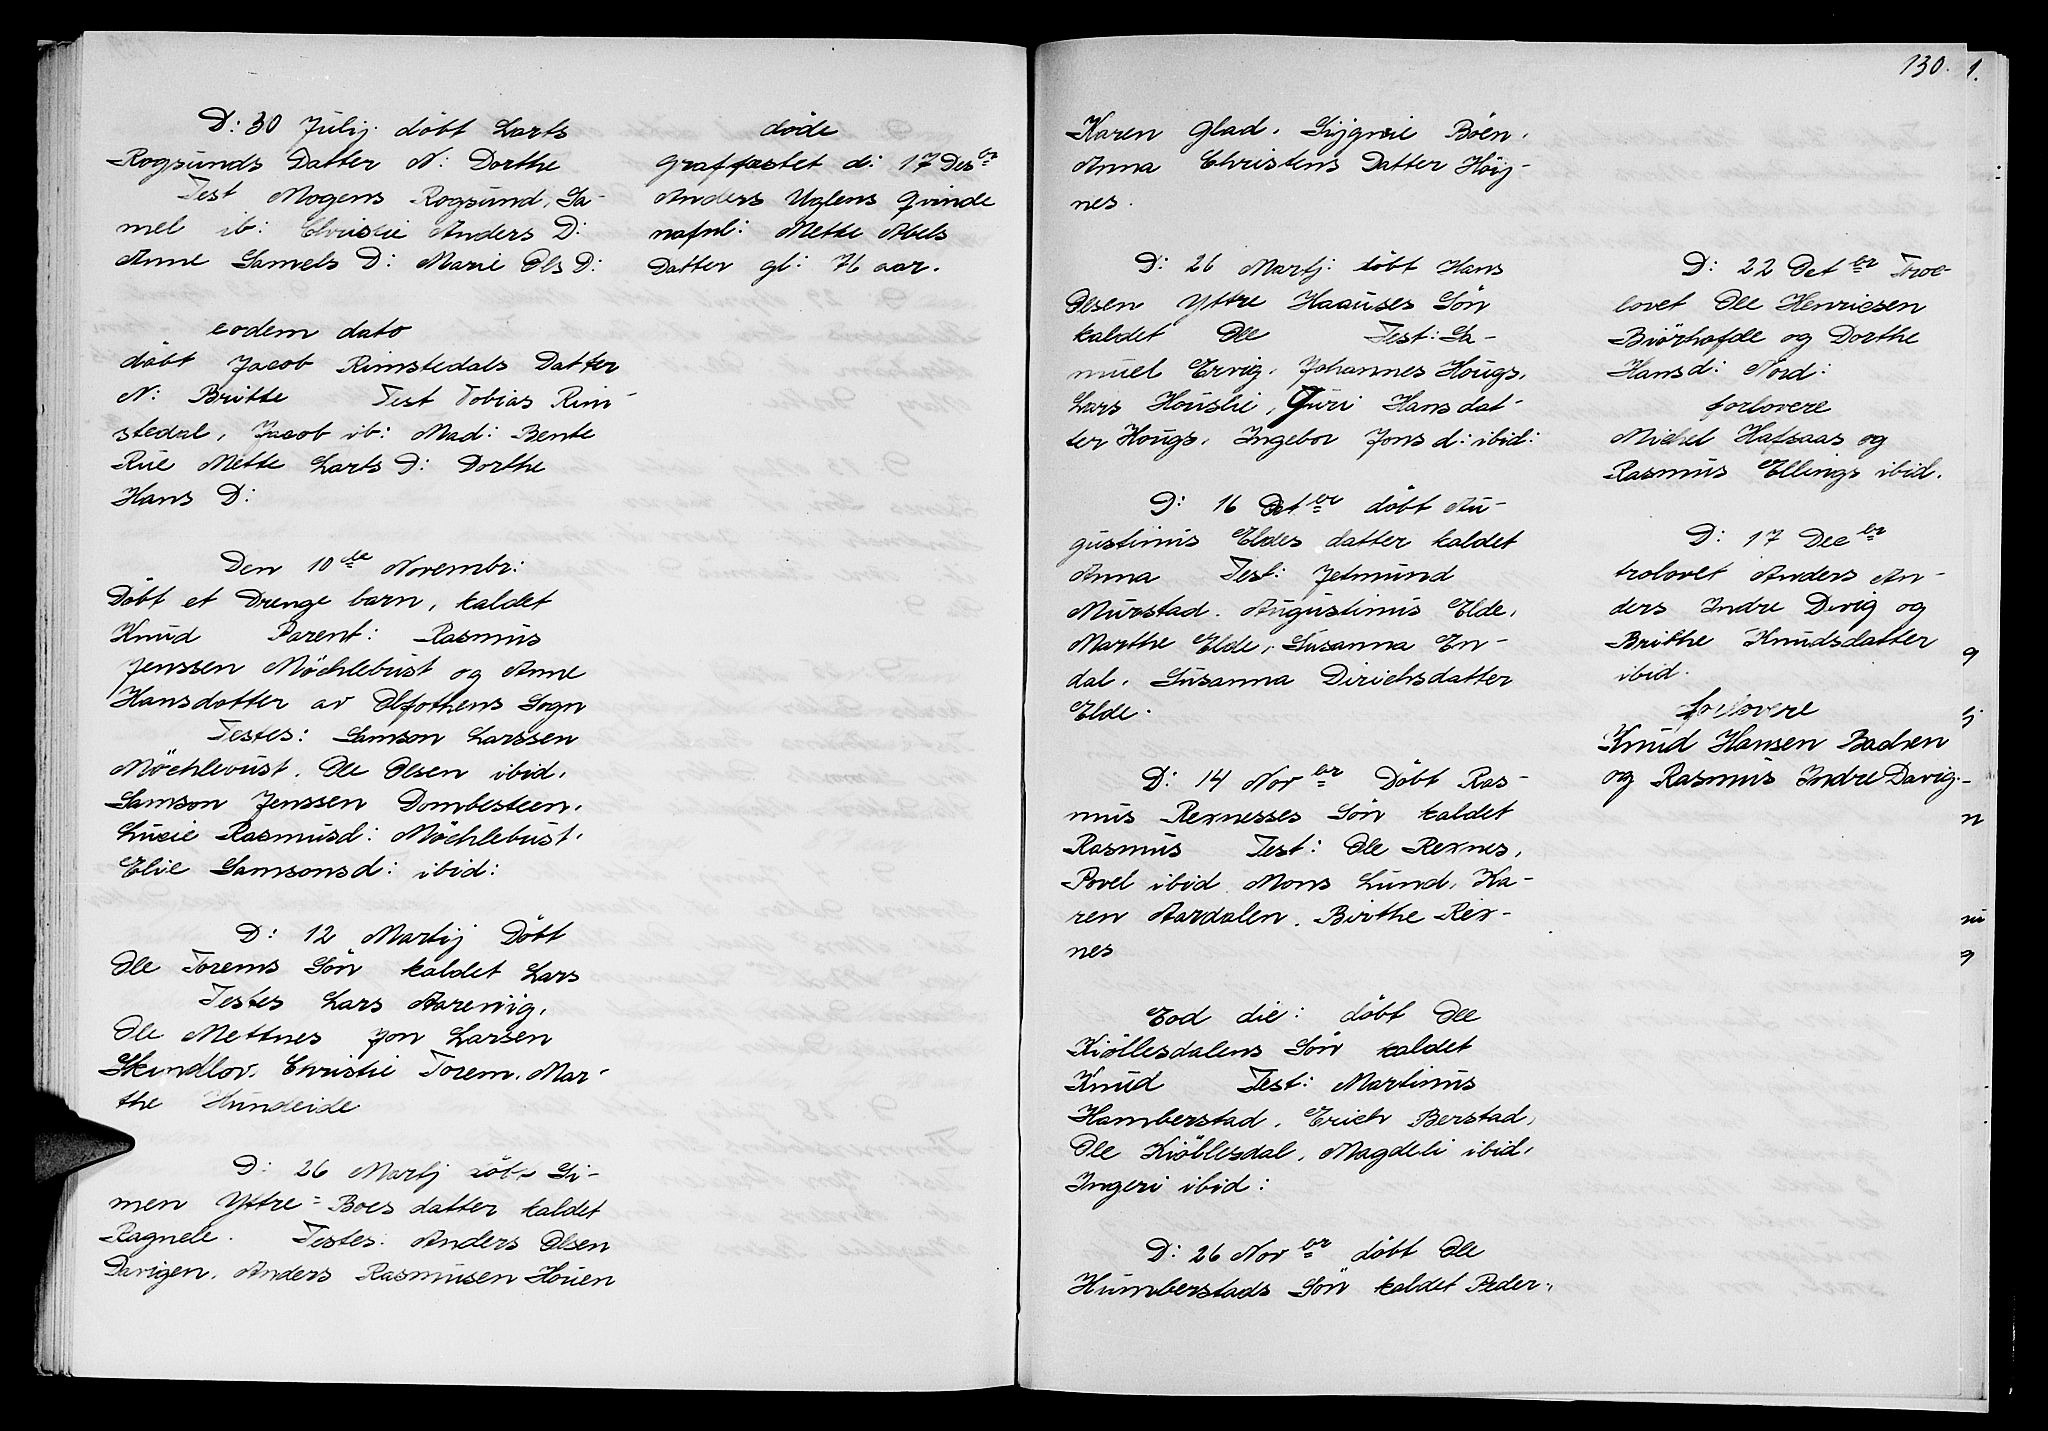 D: 30 Julij döbt Larts
Rogsunds Datter N: Dorthe
Test Mogens Rogsund, Sa-
mel ib: Christie Anders D:
Anne Samels D: Marie Ols D:
eodem dato
döbt Jacob Rimstedals Datter
N: Britte Test Tobias Rim-
stedal, Jacob ib: Mad: Bente
Rue Mette Larts D: Dorthe
Hans D:
Den 10de Novembr:
Döbt et Drenge barn, kaldet
Knud Parent: Rasmus
Jenssen Möchlebust og Anne
Hansdatter av Olfothens Sogn
Testes: Samson Larssen
Möchlevust. Ole Olsen ibid.
Samson Jenssen Dombesteen.
Lucie Rasmusd: Möchlebust.
Elie Samsonsd: ibid:
D: 12 Martij Döbt
Ole Torems Sön kaldet Lars
Testes Lars Aarevig,
Ole Mettnes Jon Larsen
Skindlov. Christie Torem. Mar-
the Hundeide
D: 26 Martj döbt Si-
men Yttre=Boes datter kaldet
Ragnele. Testes. Anders Olsen
Davigen. Anders Rasmusen Houen
døde
graffæstet d: 17 Desbr
Anders Uglens Qvinde
nafnl: Mette Abels
Datter gl: 76 aar.
130. 1.
Karen Glad. Sijgnie Böen.
Anna Christens Datter Höij-
nes.
D: 26 Martj: döbt Hans
Olsen Yttre Haauses Sön
kaldet Ole Test: Sa-
muel Ervig. Johannes Hougs.
Lars Houslie, Guri Hansdat-
ter Hougs. Ingebor Jons d: ibid:
D: 16 Octbr döbt Au-
gustinus Eldes datter kaldet
Anna Test: Jetmund
Murstad. Augustinus Elde.
Marthe Elde. Susanna En-
dal. Susanna Dirichsdatter
Elde.
D: 14 Novbr Döbt Ras-
mus Rexnesses Sön kaldet
Rasmus Test: Ole Rexnes.
Povel ibid. Mons Lund. Ka-
ren Aardalen. Birthe Rex-
nes
Eod die: döbt Ole
Kiöllesdalens Sön kaldet
Knud Test: Martinus
Hamberstad. Erich Berstad.
Ole Kiöllesdal. Magdeli ibid.
Ingeri ibid:
D: 26 Novbr döbt Ole
Humberstads Sön kaldet Peder.
D: 22 Octbr Troe-
lovet Ole Henricsen
Biörhofde og Dorthe
Hansd: Nord:
forlovere
Michel Hafsaas og
Rasmus Ellings ibid.
D: 17 Decbr
trolovet Anders An-
ders Indre Dvig og
Brithe Knudsdatter
ibid.
forlovere
Knud Hansen Bachen
og Rasmus Indre Davig.